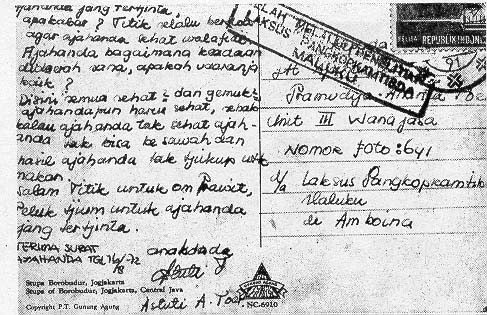 Ajahanda jang tertjinta,
apakabar? Titik selalu berdoa
agar ajahanda sehat walafiat.
Ajahanda bagaimana keadaan
didaerah sana, apakah udaranja
baik?
Disini semua sehat² dan gemuk²
ajahandapun harus sehat, sebab
kalau ajahanda tak sehat ajah-
anda tak bisa ke sawah dan
hasil ajahanda tak tjukup utk
makan.
Salam Titik untuk om Prawit,
Peluk tjium untuk ajahanda
jang tertjinta.
TERIMA SURAT
AJAHANDA TGL
ananda
Astuti A. Toer
Stupa Borobudur, Jogjakarta
Stupa of Borobudur, Jogjakarta, Central Java
Copyright P.T. Gunung Agung
GUNUNG AGUNG
NC-6910
TELAH MELALUI PENELITIAN
LAKSUS PANGKOPKAMTIBDA
MALUKU
PELITA
REPUBLIK INDONESIA
Pramudya A. Toer
Unit III Wanajasa
NOMOR FOTO: 641
Laksus Pangkopkamtib
Maluku
di Amboina